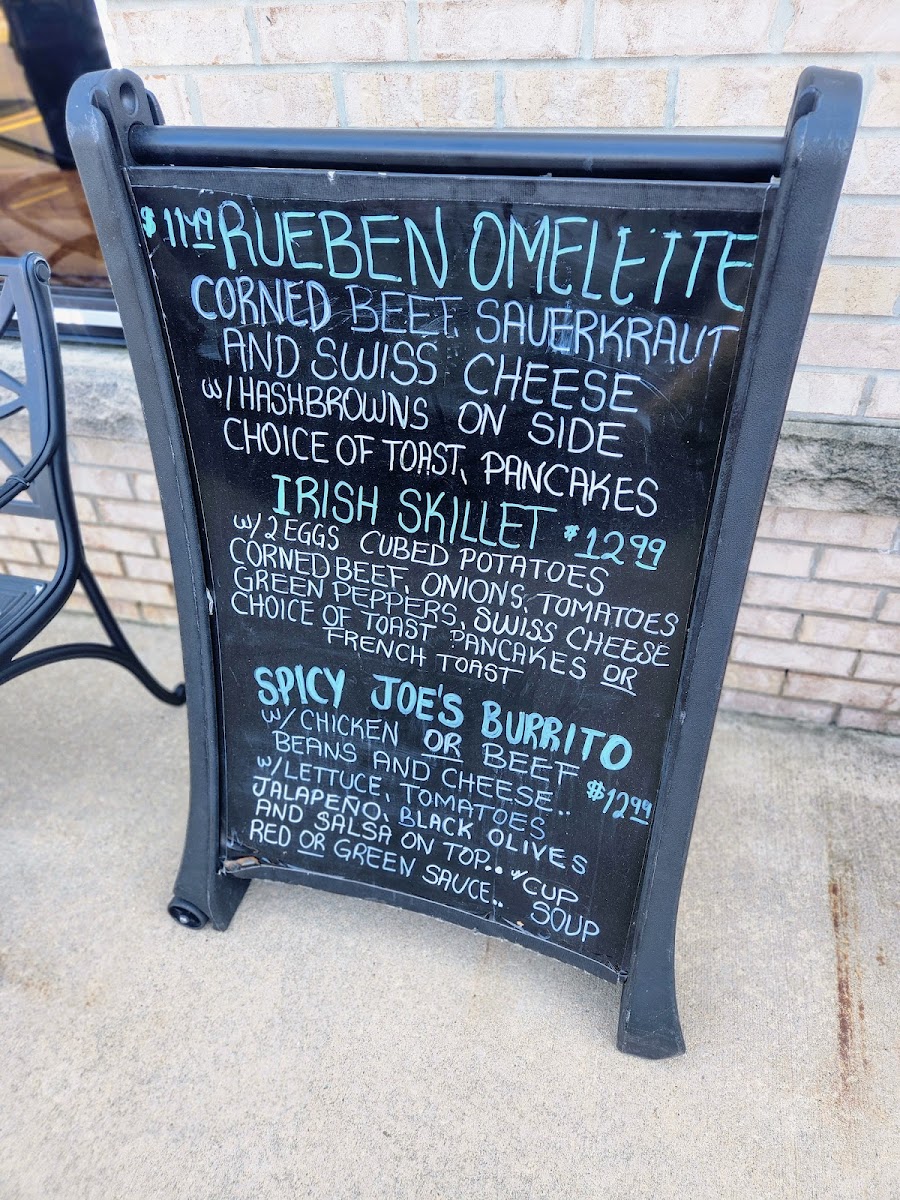 $11.99 RUEBEN OMELETTE
CORNED BEEF, SAUERKRAUT
AND SWISS CHEESE
W/HASHBROWNS ON SIDE
CHOICE OF TOAST, PANCAKES
IRISH SKILLET $12.99
W/2 EGGS CUBED POTATOES
CORNED BEEF, ONIONS, TOMATOES
GREEN PEPPERS, SWISS CHEESE
CHOICE OF TOAST PANCAKES OR
FRENCH TOAST
SPICY JOE'S BURRITO
W/CHICKEN OR BEEF
BEANS AND CHEESE.. $12.99
W/LETTUCE, TOMATOES
JALAPEÑO, BLACK OLIVES
AND SALSA ON TOP.. W/CUP
RED OR GREEN SAUCE.. SOUP